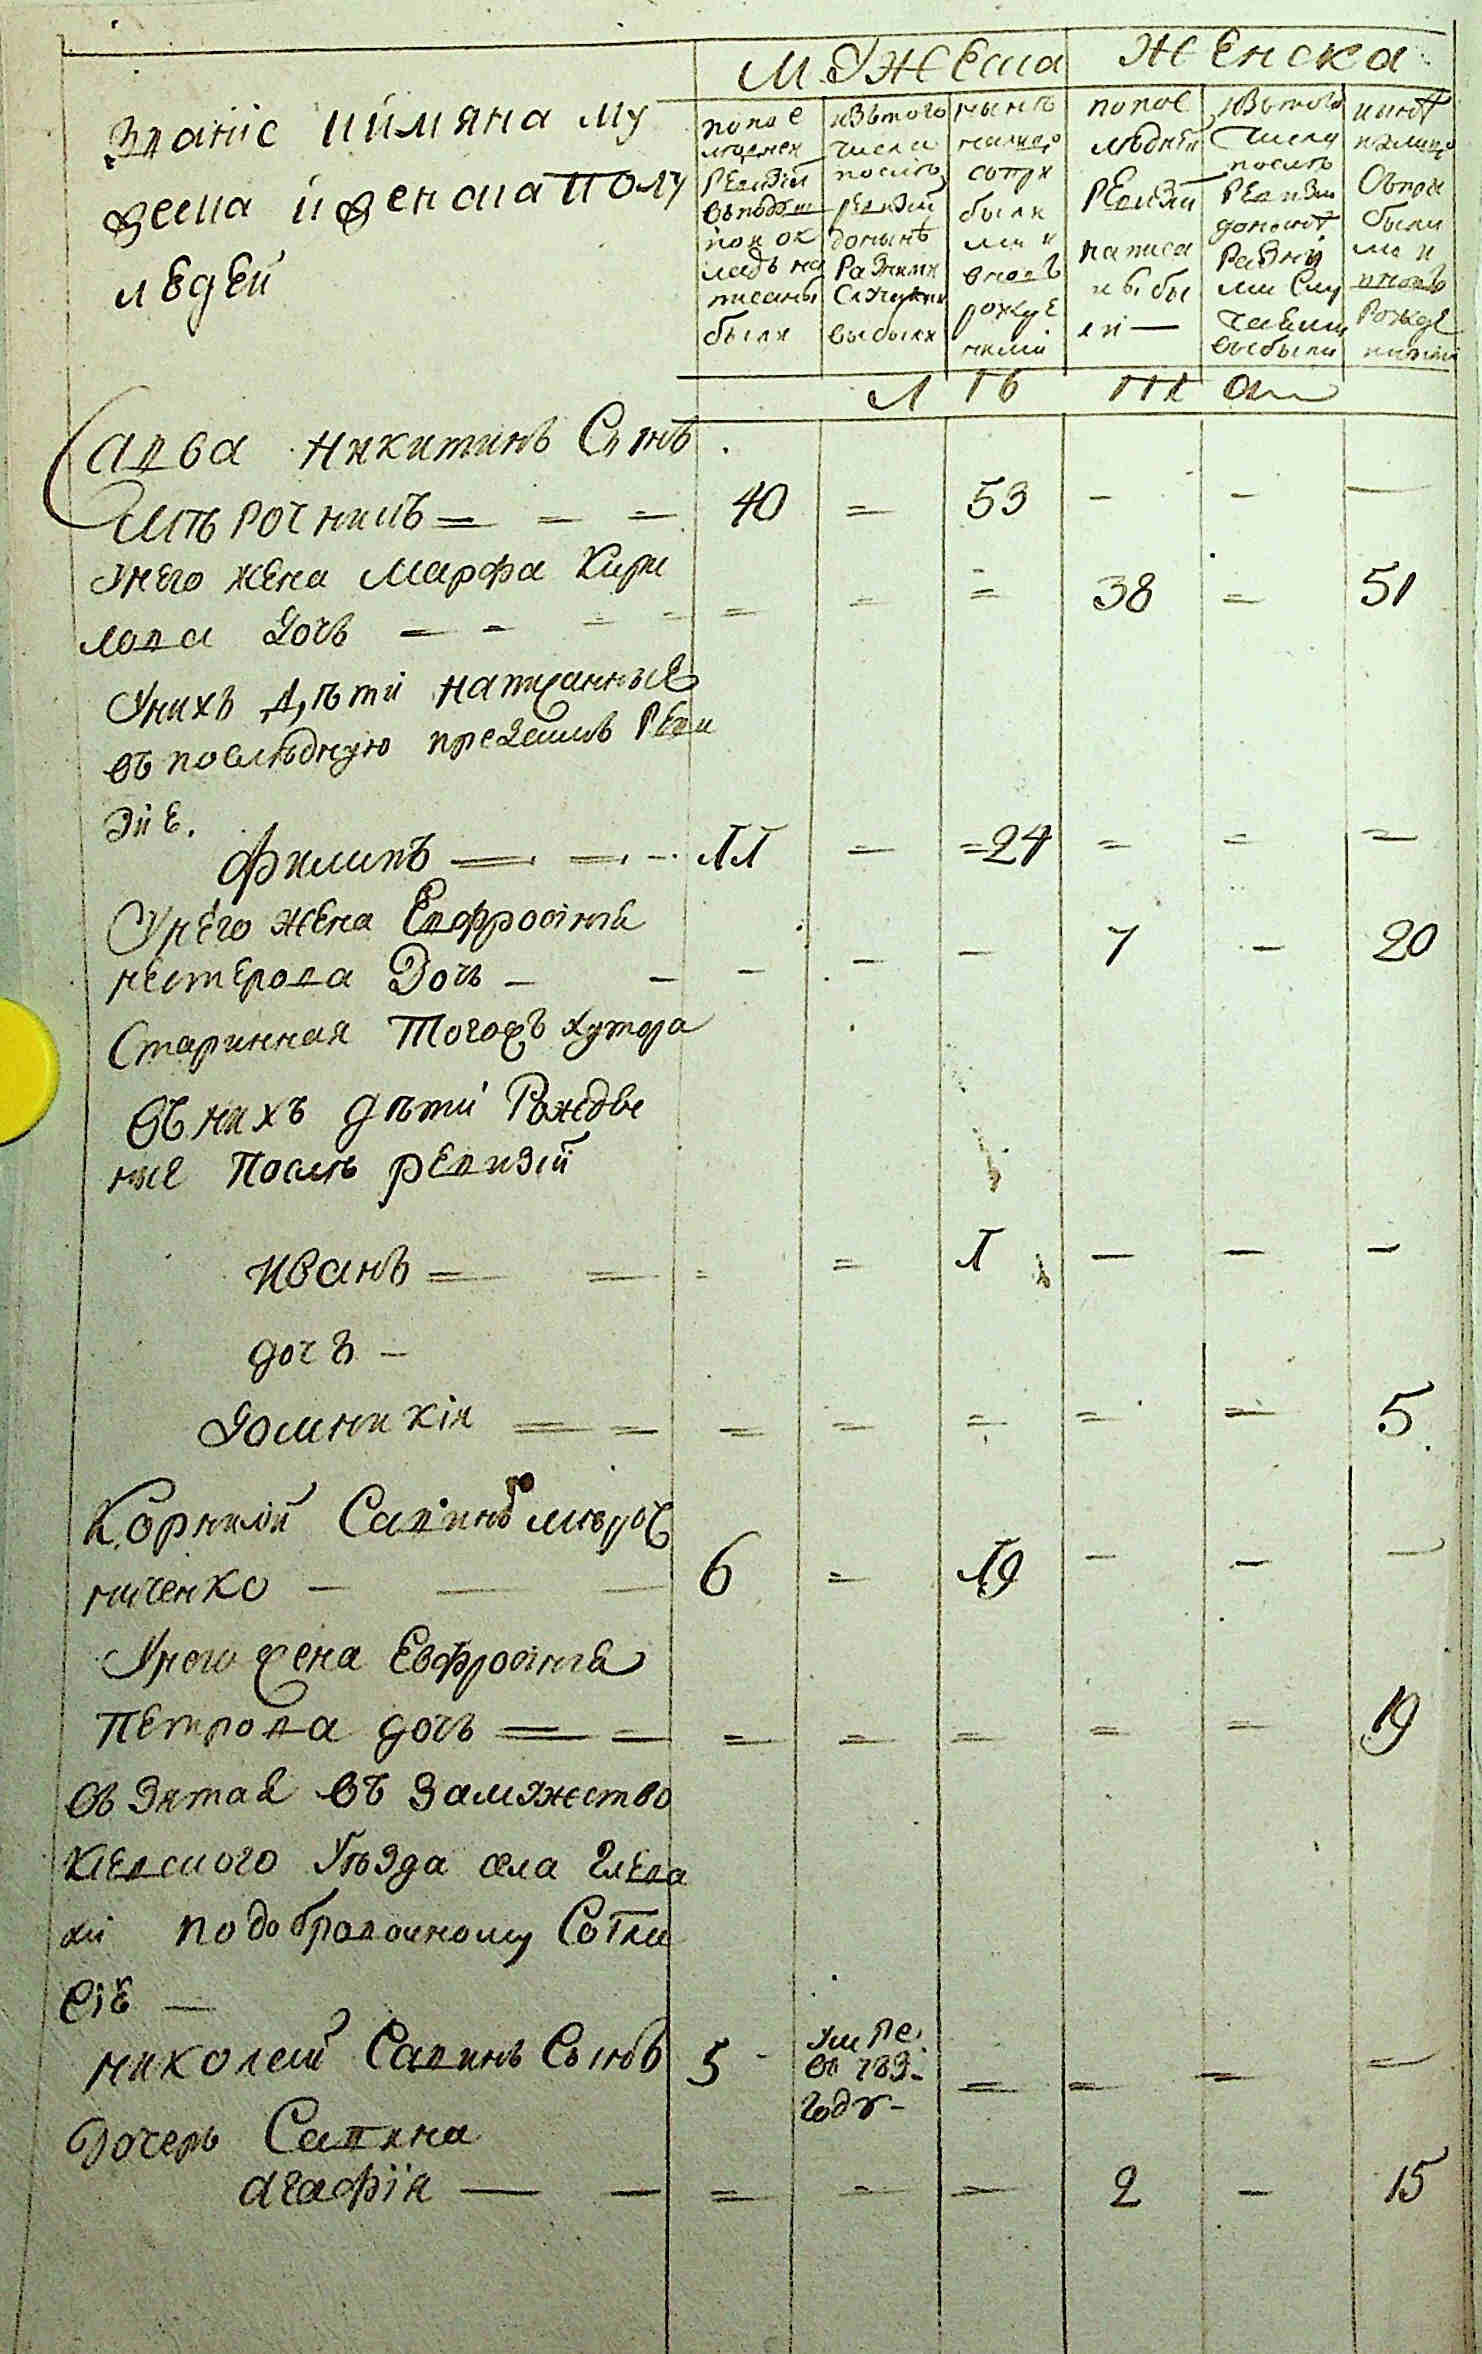 МУЖЕска ЖЕнска
Званіе иймяна му
жеска йженска полу
лЕдЕй
попос
леднеи
РЕвизїи
въподуш
ном ок
ладъ на
писаны
были
изътого
числа
послѣ
ревизїи
донынѣ
Разными
Случаями
выбыли
нынѣ
налицо
сопри
были
ми и
вновъ
рожде
ними
попос
лѣднеи
РЕвизїи
написа
ны бы
ли —
изътого
Числа
послѣ
РЕвизїи
донынѣ
Разны
ми Слу
чаями
выбыли
нынѣ
налицо
Съпри
были
ми и
вновъ
Рожде
ними
Л ѣ т а
Савва Никитинъ Сынъ
Мѣрочникъ = = = 40 = 53 - - -
Унего жена Марфа Кири
лова Дочъ = = = = = = = 38 = 51
Унихъ Дѣти написанные
въ послѣдную предсимъ РЕви
зїе.
Филипъ = = - 11 = =24 = = =
Унего жена Евфросиния
Нестерова Дочъ - - - - - 7 - 20
Старинная Тогожъ хутора
Въ нихъ дѣти Рожде
ные Послѣ рЕвизїи
Иванъ = = = = 1 - - -
дочъ -
Домникія = = = = = = = 5
Корнилїй Савинъ Мѣроч
ниченко - - - 6 = 19 - - -
Унего жена Евфросиния
Петрова дочъ = = = = = = = 19
въ Зятая въ Замужество
Кїевского Уѣзда села Глева
хи подобровочному Согла
сїе —
Николай Савинъ Сынъ 5 - Умре
въ 789.
году- = = = =
Дочерь Савина
Агафїя — — = = = 2 - 15